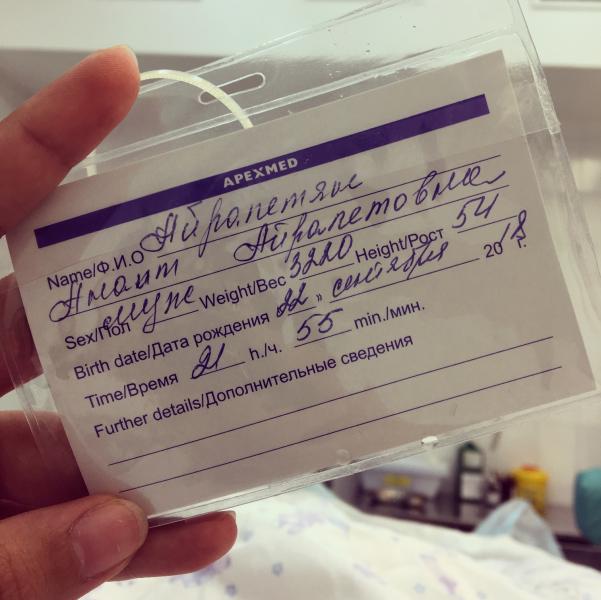 APEXMED
Name/Ф.И.О Айрапетян
Анаит Айрапетовна
Sex/Пол муж Weight/Вес 3220 Height/Рост 54
Birth date/Дата рождения 22 » сентября 2018 г.
Time/Время 21 h./ч. 55 min./мин.
Further details/Дополнительные сведения